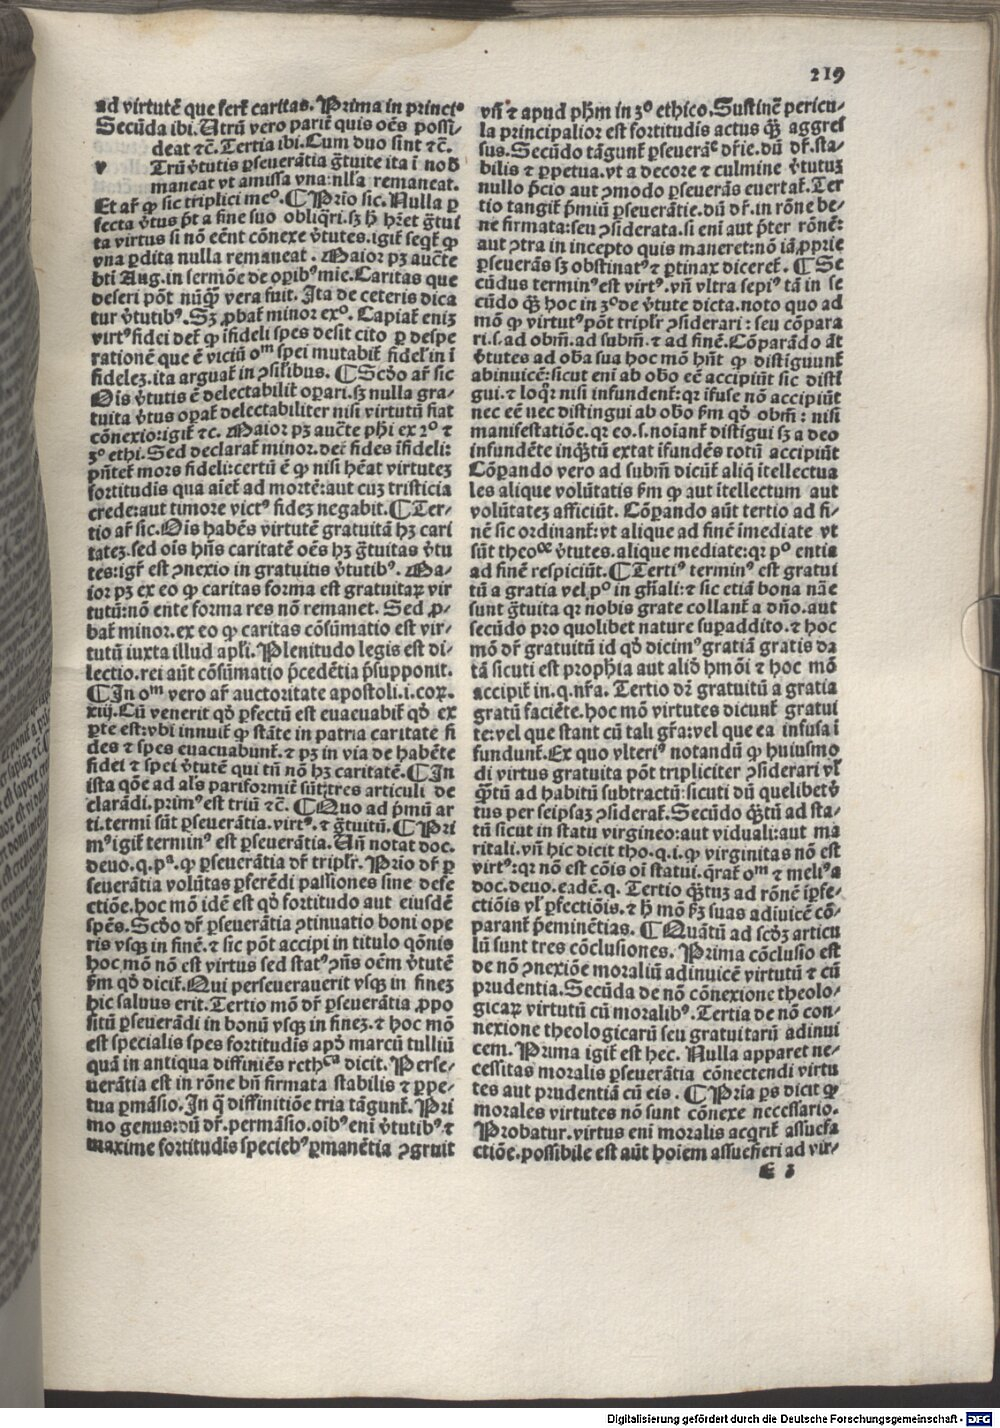 219
ad virtutē que fert̄ caritas. Prima in princi⁰
Secūda ibi. Utrū vero parit̄ quis oēs possi-
deat ⁊c̄. Tertia ibi. Cum duo sint ⁊c̄.
v Trū v̄tutis ꝑseuerātia ḡtuite ita ī nob̄
maneat vt amissa vna: nlľa remaneat.
Et ar̄ ꝙ sic triplici me⁰. ¶ Prīo sic. Nulla ꝑ
fecta v̄tus p̄t a fine suo obliq̄ri. sꝫ h̄ hr̄et ḡtui
ta virtus si nō eēnt cōnexe v̄tutes. igit̄ seqt̄ ꝙ
vna ꝑdita nulla remaneat. Maior pꝫ auct̄e
bt̄i Aug. in sermōe de oꝑibꝰ mie. Caritas que
deseri pōt nūq̄ꝫ vera fuit. Ita de ceteris dica
tur v̄tutibꝰ. Sꝫ ꝓbat̄ minor ex⁰. Capiat̄ eniꝫ
virtꝰ fidei det̄ ꝙ īfideli spes desit cito ꝑ despe
rationē que ē viciū oᵐ spei mutabit̄ fidel̓ in ī
fidelez. ita arguat̄ in ꝯsilibus. ¶ Scďo ar̄ sic
Oīs v̄tutis ē delectabilit̄ oꝑari. sꝫ nulla gra-
tuita v̄tus oꝑat̄ delectabiliter nisi virtutū fiat
cōnexio: igit̄ ⁊c. Maior pꝫ auct̄e phi ex 2⁰ ⁊
3⁰ ethi. Sed declarat̄ minor. det̄ fides īfideli:
pn̄tet̄ mors fideli: certū ē ꝙ nisi hēat virtuteꝫ
fortitudis qua aīet̄ ad mortē: aut cuꝫ tristicia
crede: aut timore victꝰ fidez negabit. ¶ Ter-
tio ar̄ sic. Oīs habēs virtutē gratuitā hꝫ cari
tateꝫ. sed oīs hn̄s caritatē oēs hꝫ ḡtuitas v̄tu
tes: igit̄ est ꝯnexio in gratuitis v̄tutibꝰ. Ma-
ior pꝫ ex eo ꝙ caritas forma est gratuitaꝝ vir
tutū: nō ente forma res nō remanet. Sed ꝓ-
bat̄ minor. ex eo ꝙ caritas cōsūmatio est vir-
tutū iuxta illud apľi. Plenitudo legis est di-
lectio. rei aūt cōsūmatio p̄cedētia p̄supponit.
¶ In oᵐ vero ar̄ auctoritate apostoli. i. coꝝ.
xiij. Cū venerit qď perfectū est euacuabit̄ qď ex
ꝑte est: vbi innuit ꝙ stāte in patria caritate fi
des ⁊ spes euacuabunt̄. ⁊ pꝫ in via de habēte
fidei ⁊ spei v̄tutē qui tn̄ nō hꝫ caritatē. ¶ In
ista qōe ad aľs pariformit̄ sūt tres articuli de
clarādi. primꝰ est triū ⁊c̄. ¶ Quo ad p̄mū ar
ti. termi sūt ꝑseuerātia. virtꝰ. ⁊ ḡtuitū. ¶ Pri
mꝰ igit̄ terminꝰ est ꝑseuerātia. Un̄ notat doc.
deuo. q. pᵃ. ꝙ ꝑseuerātia dr̄ tripľr. Prīo dr̄ ꝑ
seuerātia volūtas ꝑferēdi passiones sine defe
ctiōe. hoc mō idē est qď fortitudo aut eiusdē
spēs. Scďo dr̄ ꝑseuerātia ꝯtinuatio boni ope
ris vsqꝫ in finē. ⁊ sic pōt accipi in titulo qōnis
hoc mō nō est virtus sed statꝰ ꝯn̄s oēm v̄tutē
ẜm qď dicit̄. Qui perseuerauerit vsqꝫ in fineꝫ
hic saluus erit. Tertio mō dr̄ ꝑseuerātia ꝓpo
sitū ꝑseuerādi in bonū vsqꝫ in fineꝫ. ⁊ hoc mō
est specialis spes fortitudis apď marcū tulliū
quā in antiqua diffiniēs rethᶜᵃ dicit. Perse-
uerātia est in rōne bn̄ firmata stabilis ⁊ ꝑpe-
tua ꝑmāsio. In q̄ diffinitiōe tria tāgunt̄. Pri
mo genus: dū dr̄. permāsio. oībꝰ enī v̄tutibꝰ ⁊
maxime fortitudis speciebꝰ ꝑmanētia ꝯgruit
vn̄ ⁊ apud phm in 3⁰ ethico. Sustinē pericu-
la principalior est fortitudis actus q̄ꝫ aggreſ
sus. Secūdo tāgunt̄ ꝑseuerāᵉ dr̄ie. dū dr̄. sta-
bilis ⁊ ꝑpetua. vt a decore ⁊ culmine v̄tutuꝫ
nullo p̄cio aut ꝯmodo ꝑseuerās euertat̄. Ter
tio tangit̄ p̄miū ꝑseuerātie. dū dr̄. in rōne be-
ne firmata: seu ꝯsiderata. si eni aut p̄ter rōnē:
aut ꝯtra in incepto quis maneret: nō iā ꝓprie
ꝑseuerās sꝫ obstinatꝰ ⁊ ꝑtinax diceret̄. ¶ Se
cūdus terminꝰ est virtꝰ. vn̄ vltra sepiꝰ tā in se
cūdo q̄ꝫ hoc in 3⁰ de v̄tute dicta. noto quo ad
mō ꝙ virtutꝰ pōt tripľr ꝯsiderari: seu cōpara
ri. s. ad obm̄. ad subm̄. ⁊ ad finē. Cōparādo āt
v̄tutes ad oba sua hoc mō hn̄t ꝙ distiguunt̄
abinuicē: sicut enī ab obo eē accipiūt sic distī
gui. ⁊ loqr̄ nisi infundent̄: qr īfuse nō accipiūt
nec eē nec distingui ab obo ẜm qď obm̄: nisi
manifestatiōe. qr eo. s. noīant̄ distīgui sꝫ a deo
infundēte inq̄tū extat īfundēs totū accipiūt
Cōꝑando vero ad subm̄ dicūt̄ aliq̄ ītellectua
les alique volūtatis ẜm ꝙ aut ītellectum aut
volūtateꝫ afficiūt. Cōꝑando aūt tertio ad fi-
nē sic ordinant̄: vt alique ad finē īmediate vt
sūt theoᶜᵉ v̄tutes. alique mediate: qr p⁰ entia
ad finē respiciūt. ¶ Tertiꝰ terminꝰ est gratui
tū a gratia vel p⁰ in gn̄ali: ⁊ sic etiā bona nāe
sunt ḡtuita qr nobis grate collant̄ a dn̄o. aut
secūdo pro quolibet nature suꝑaddito. ⁊ hoc
mō dr̄ gratuitū id qď dicimꝰ gratiā gratis da
tā sicuti est prophīa aut aliď hmōi ⁊ hoc mō
accipit̄ in. q. nr̄a. Tertio dr̄ gratuitū a gratia
gratū faciēte. hoc mō virtutes dicunt̄ gratui
te: vel que stant cū tali gr̄a: vel que ea infusa ī
fundunt̄. Ex quo vlteriꝰ notandū ꝙ huiusmo
di virtus gratuita pōt tripliciter ꝯsiderari vľ
q̄tū ad habitū subtractū: sicuti dū quelibet v̄
tus per seipsaꝫ ꝯsiderat̄. Secūdo q̄tū ad sta-
tū sicut in statu virgineo: aut viduali: aut ma
ritali. vn̄ hic dicit tho. q. i. ꝙ virginitas nō est
virtꝰ: qr nō est cōis oī statui. qrat̄ oᵐ ⁊ meliꝰ a
doc. deuo. eadē. q. Tertio q̄tuꝫ ad rōnē īꝑfe-
ctiōis vľ ꝑfectiōis. ⁊ h̄ mō ẜꝫ suas adiuicē cō-
parant̄ p̄eminētias. ¶ Quātū ad scďꝫ articu
lū sunt tres cōclusiones. Prima cōclusio est
de nō ꝯnexiōe moraliū adinuicē virtutū ⁊ cū
prudentia. Secūda de nō cōnexione theolo-
gicaꝝ virtutū cū moralibꝰ. Tertia de nō con-
nexione theologicarū seu gratuitarū adinui
cem. Prima igit̄ est hec. Nulla apparet ne-
cessitas moralis ꝑseuerātia cōnectendi virtu
tes aut prudentiā cū eis. ¶ Prīa ꝑs dicit ꝙ
morales virtutes nō sunt cōnexe necessario.
Probatur. virtus enī moralis acq̄rit̄ assuefa
ctiōe. possibile est aūt hoīem assuefieri ad vir-
E 3
Digitalisierung gefördert durch die Deutsche Forschungsgemeinschaft - DFG